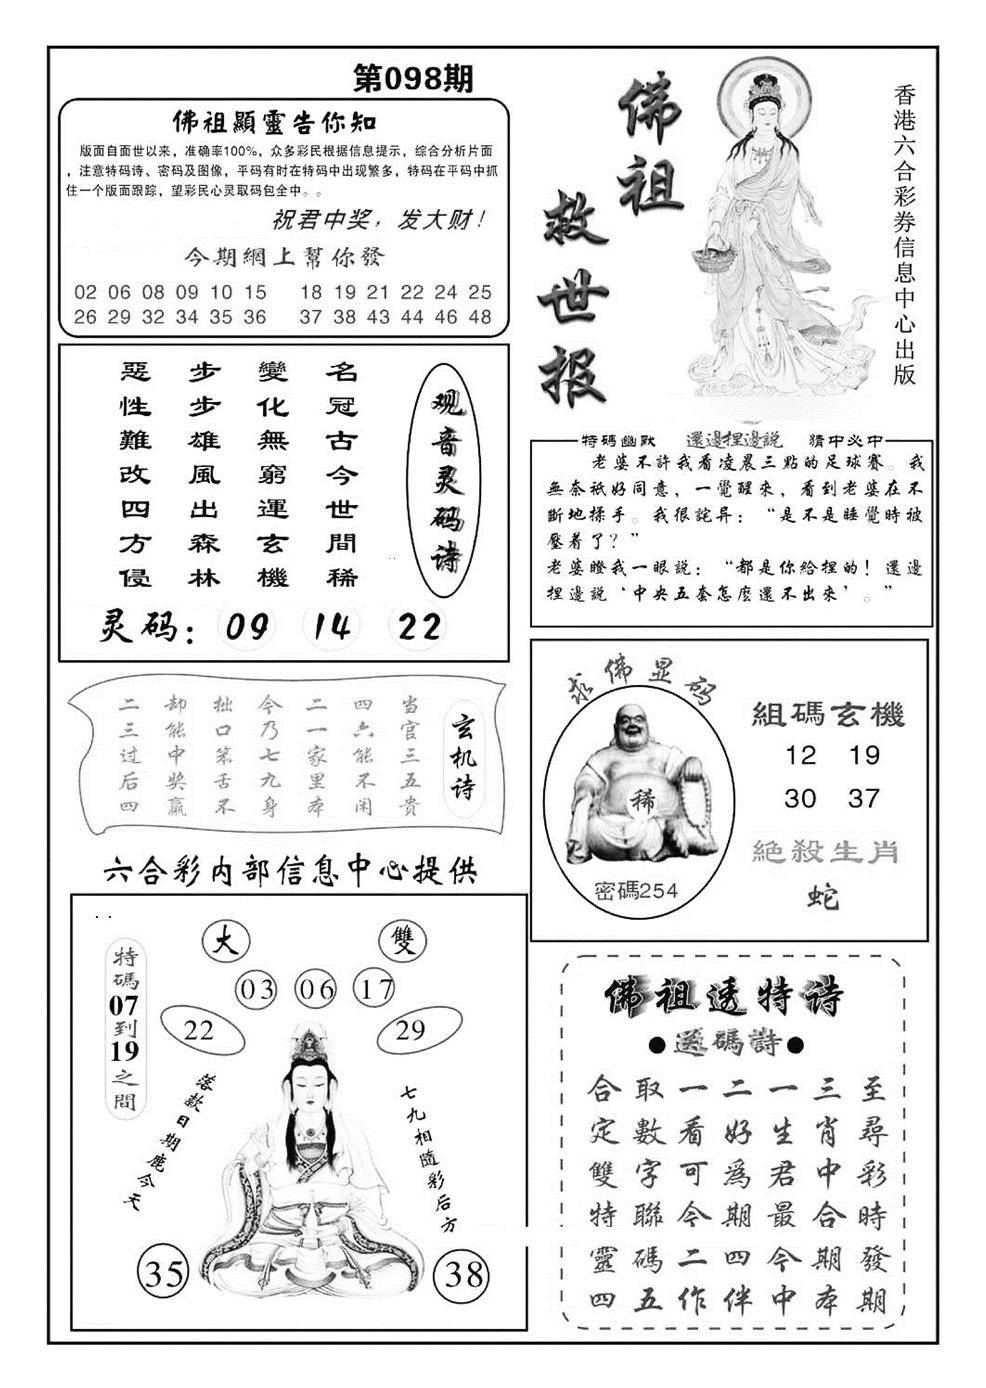 第098期
佛祖顯靈告你知
版面自面世以来，准确率100%，众多彩民根据信息提示，综合分析片面
，注意特码诗、密码及图像，平码有时在特码中出现繁多，特码在平码中抓
住一个版面跟踪，望彩民心灵取码包全中。。
祝君中奖，发大财！
今期網上幫你發
02 06 08 09 10 15 18 19 21 22 24 25
26 29 32 34 35 36 37 38 43 44 46 48
佛祖
救世报
香港六合彩券信息中心出版
观音灵码诗
名冠古今世間稀
變化無窮運玄機
步步雄風出森林
惡性難改四方侵
灵码：09 14 22
特碼幽默 還邊捏邊説 猜中必中
老婆不許我看凌晨三點的足球賽。我
無奈祇好同意，一覺醒來，看到老婆在不
斷地搽手。我很詫异：“是不是睡覺時被
壓着了？”
老婆瞪我一眼説：“都是你給捏的！還邊
捏邊説‘中央五套怎麽還不出來’。”
玄机诗
当官三五贵
四六能不闲
二一家里本
今乃七九身
拙口笨舌不
却能中奖赢
二三过后四
求佛显码
稀
密碼254
組碼玄機
12 19
30 37
絶殺生肖
蛇
六合彩内部信息中心提供
特碼07到19之間
大 雙
03 06 17
22 29
落款日期鹿今天
七九相隨彩后方
35 38
佛祖透特诗
●送碼詩●
至尋彩時發期
三肖中合期本
一生君最今中
二好爲期四伴
一看可今二作
取數字聯碼五
合定雙特靈四